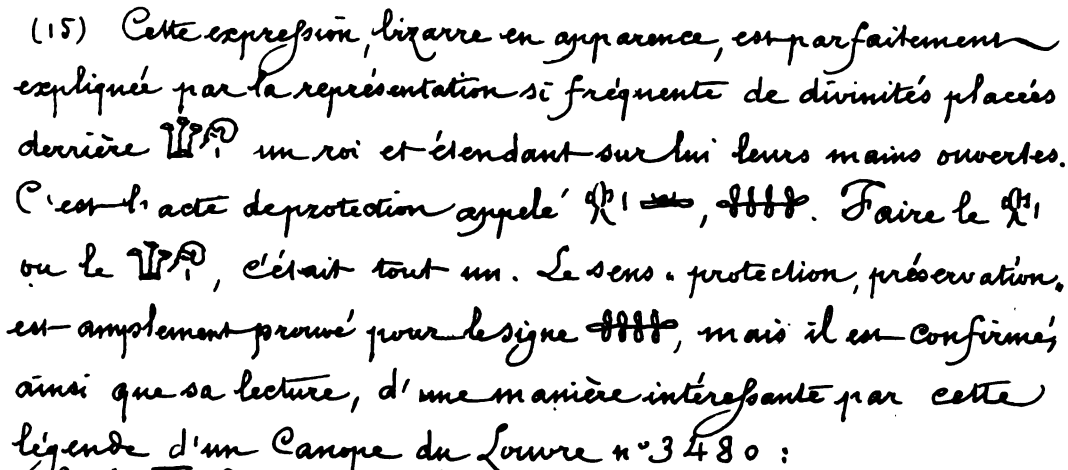 (15) Cette expression, bizarre en apparence, est parfaitement
expliquée par la représentation si fréquente de divinités placées
derrière un roi et étendant sur lui leurs mains ouvertes.
C'est l'acte de protection appelé , . Faire le
ou le , c'était tout un. Le sens " protection, préservation "
est amplement prouvé pour le signe , mais il est confirmé,
ainsi que sa lecture, d'une manière intéressante par cette
légende d'un Canope du Louvre n° 3480 :